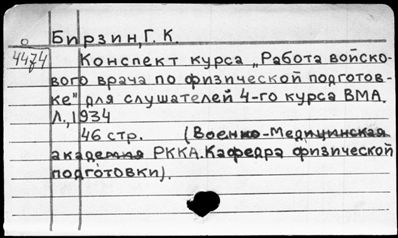 Бирзин, Г. К.
4474 Конспект курса „Работа войско-
вого врача по физической подготов-
ке" для слушателей 4-го курса ВМА.
Л., 1934
46 стр. (Военно-Медицинская
академия РККА. Кафедра физической
подготовки).